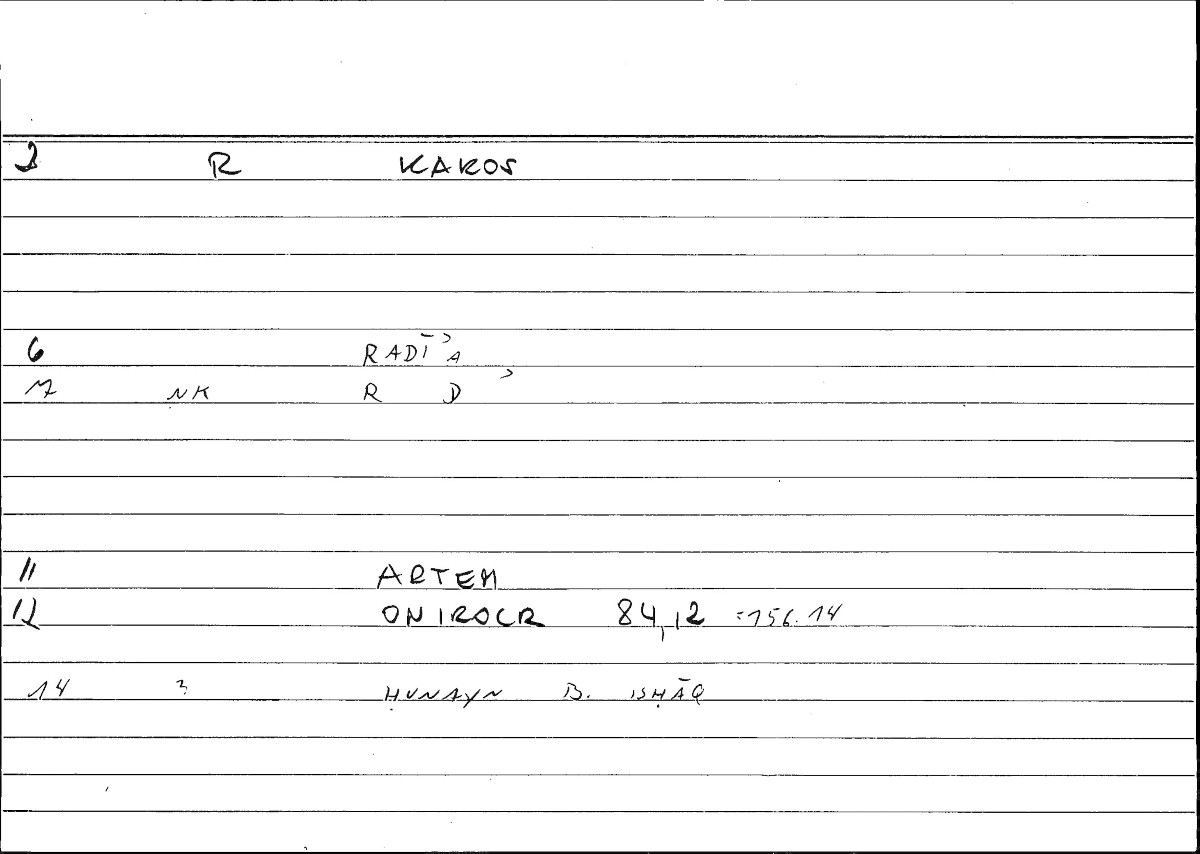 2 R KAKOS
6 RADĪʾA
7 NK R D ʾ
11 ARTEM
12 ONIROCR 84,12 =156.14
14 2 ḤUNAYN B. ISḤĀQ